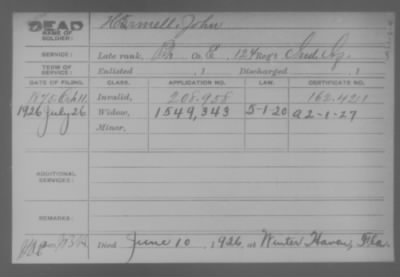 DEAD
NAME OF SOLDIER:
John
SERVICE:
Late rank, Co. E, 124 Reg't Ind. Inf.
TERM OF SERVICE:
Enlisted , 1 Discharged , 1
DATE OF FILING. CLASS. APPLICATION NO. LAW. CERTIFICATE NO.
Invalid, 208.958 162.421
1926 July 26 Widow, 1549,343 5-1-20 A2-1-27
Minor,
ADDITIONAL SERVICES:
REMARKS:
Died June 10, 1926, at Winter Haven, Fla.